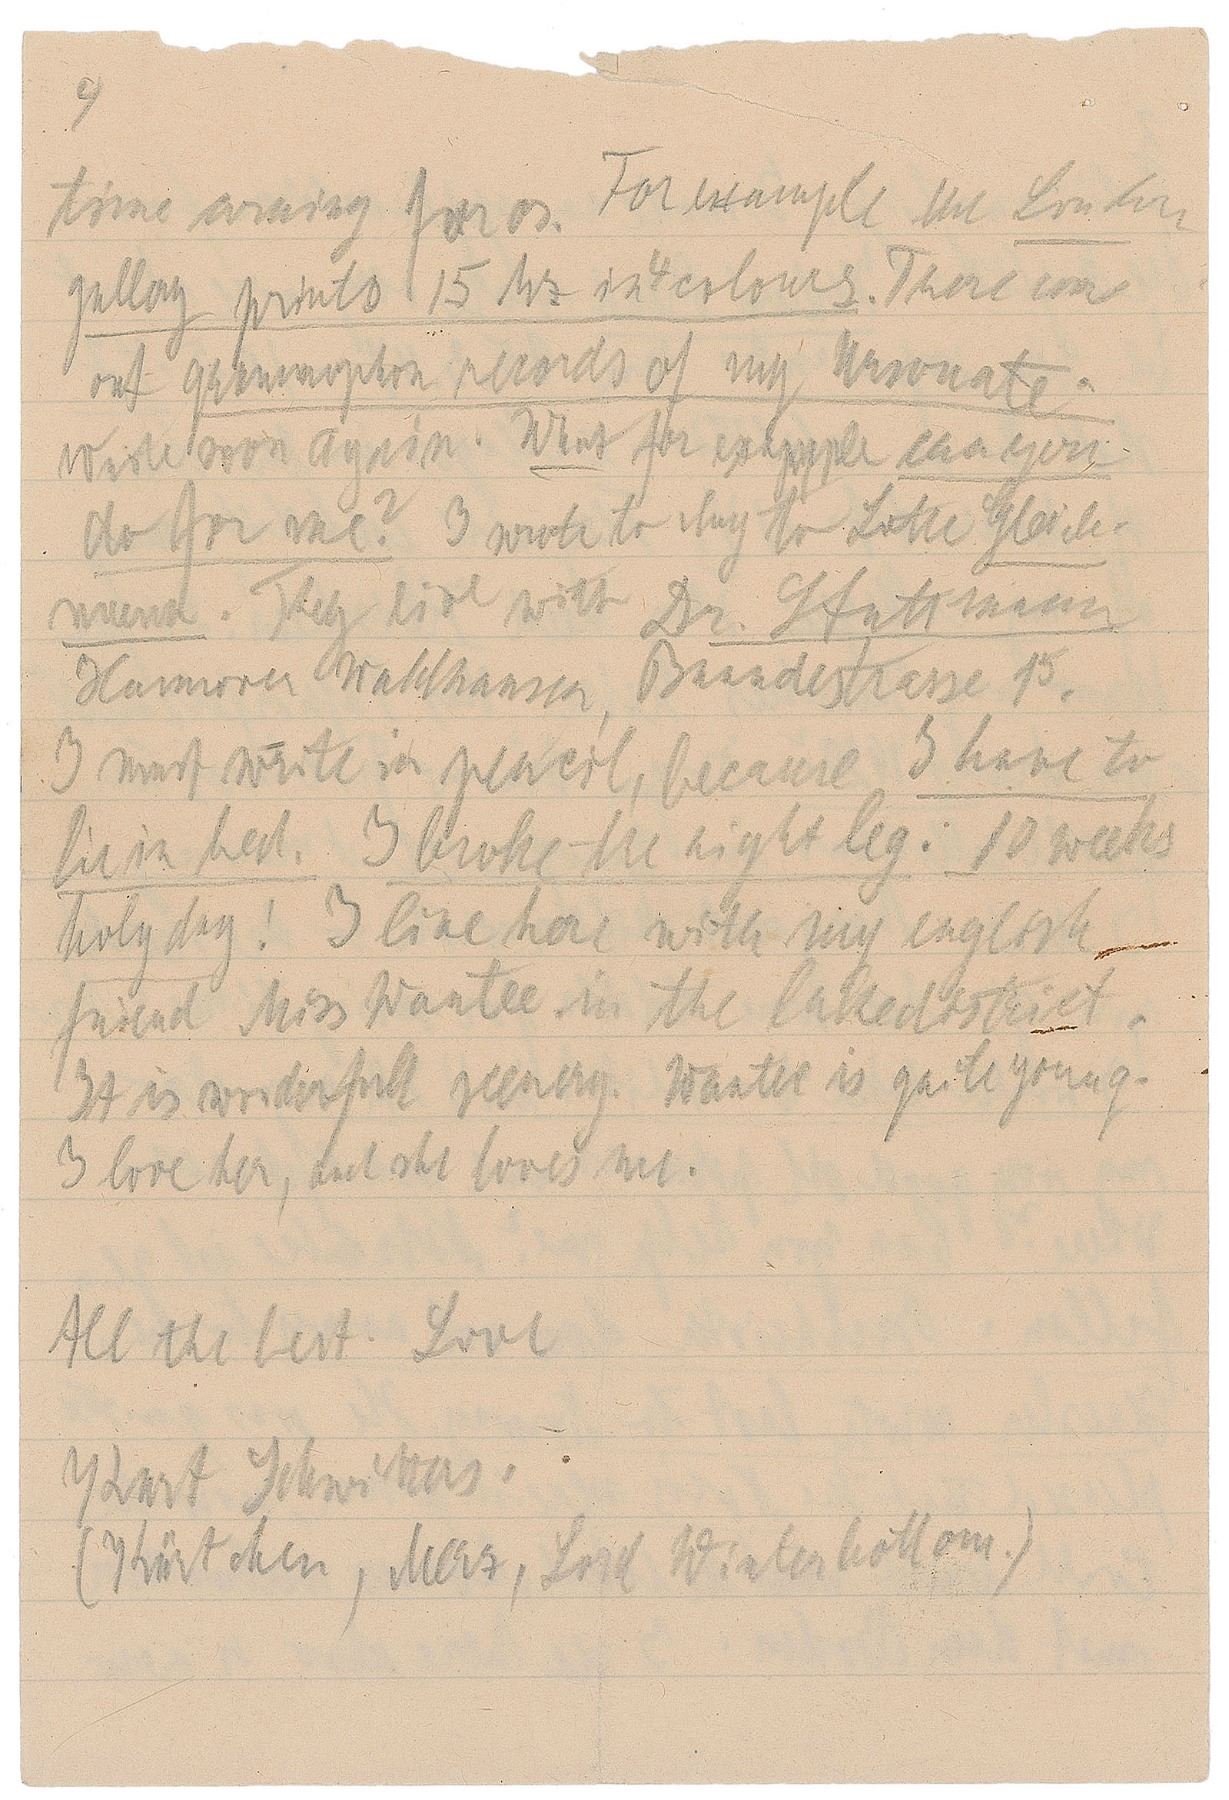 9
time coming for us. For example the London
gallery prints 15 in 4 colours. There come
out gramophon records of my Ursonate.
Write soon again. What for example can you
do for me? I wrote to day to Lotte Gleich-
mann. They live with Dr. Stuttmann
Hannover Waldhausen, Brandestrasse 15.
I must write in pencil, because I have to
lie in bed. I broke the right leg. 10 weeks
holy day! I live here with my english
friend Miss Wantee in the lakedistrict.
It is wonderfull scenery. Wantee is quite young.
I love her, and she loves me.
All the best. Love
Kurt Schwitters.
(Kürtchen, Merz, Lord Winterbottom.)